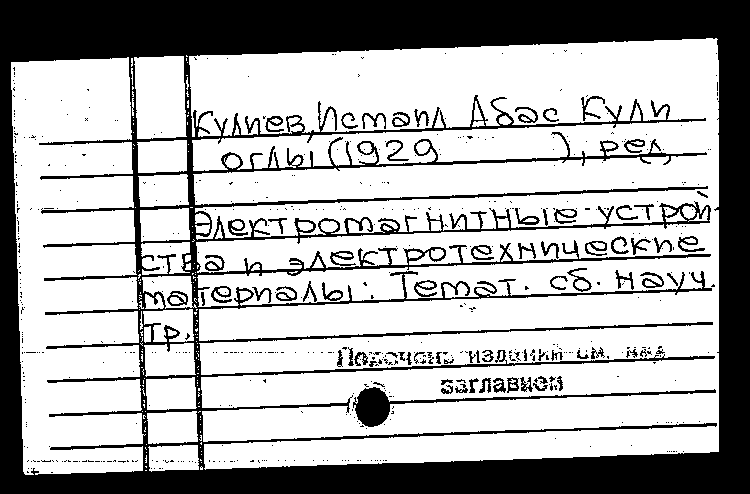 Кулиев, Исмаил Абас Кули
оглы (1929 ), ред.
Электромагнитные устрой-
ства и электротехнические
материалы: Темат. сб. науч.
тр.
Перечень изданий см. под
заглавием